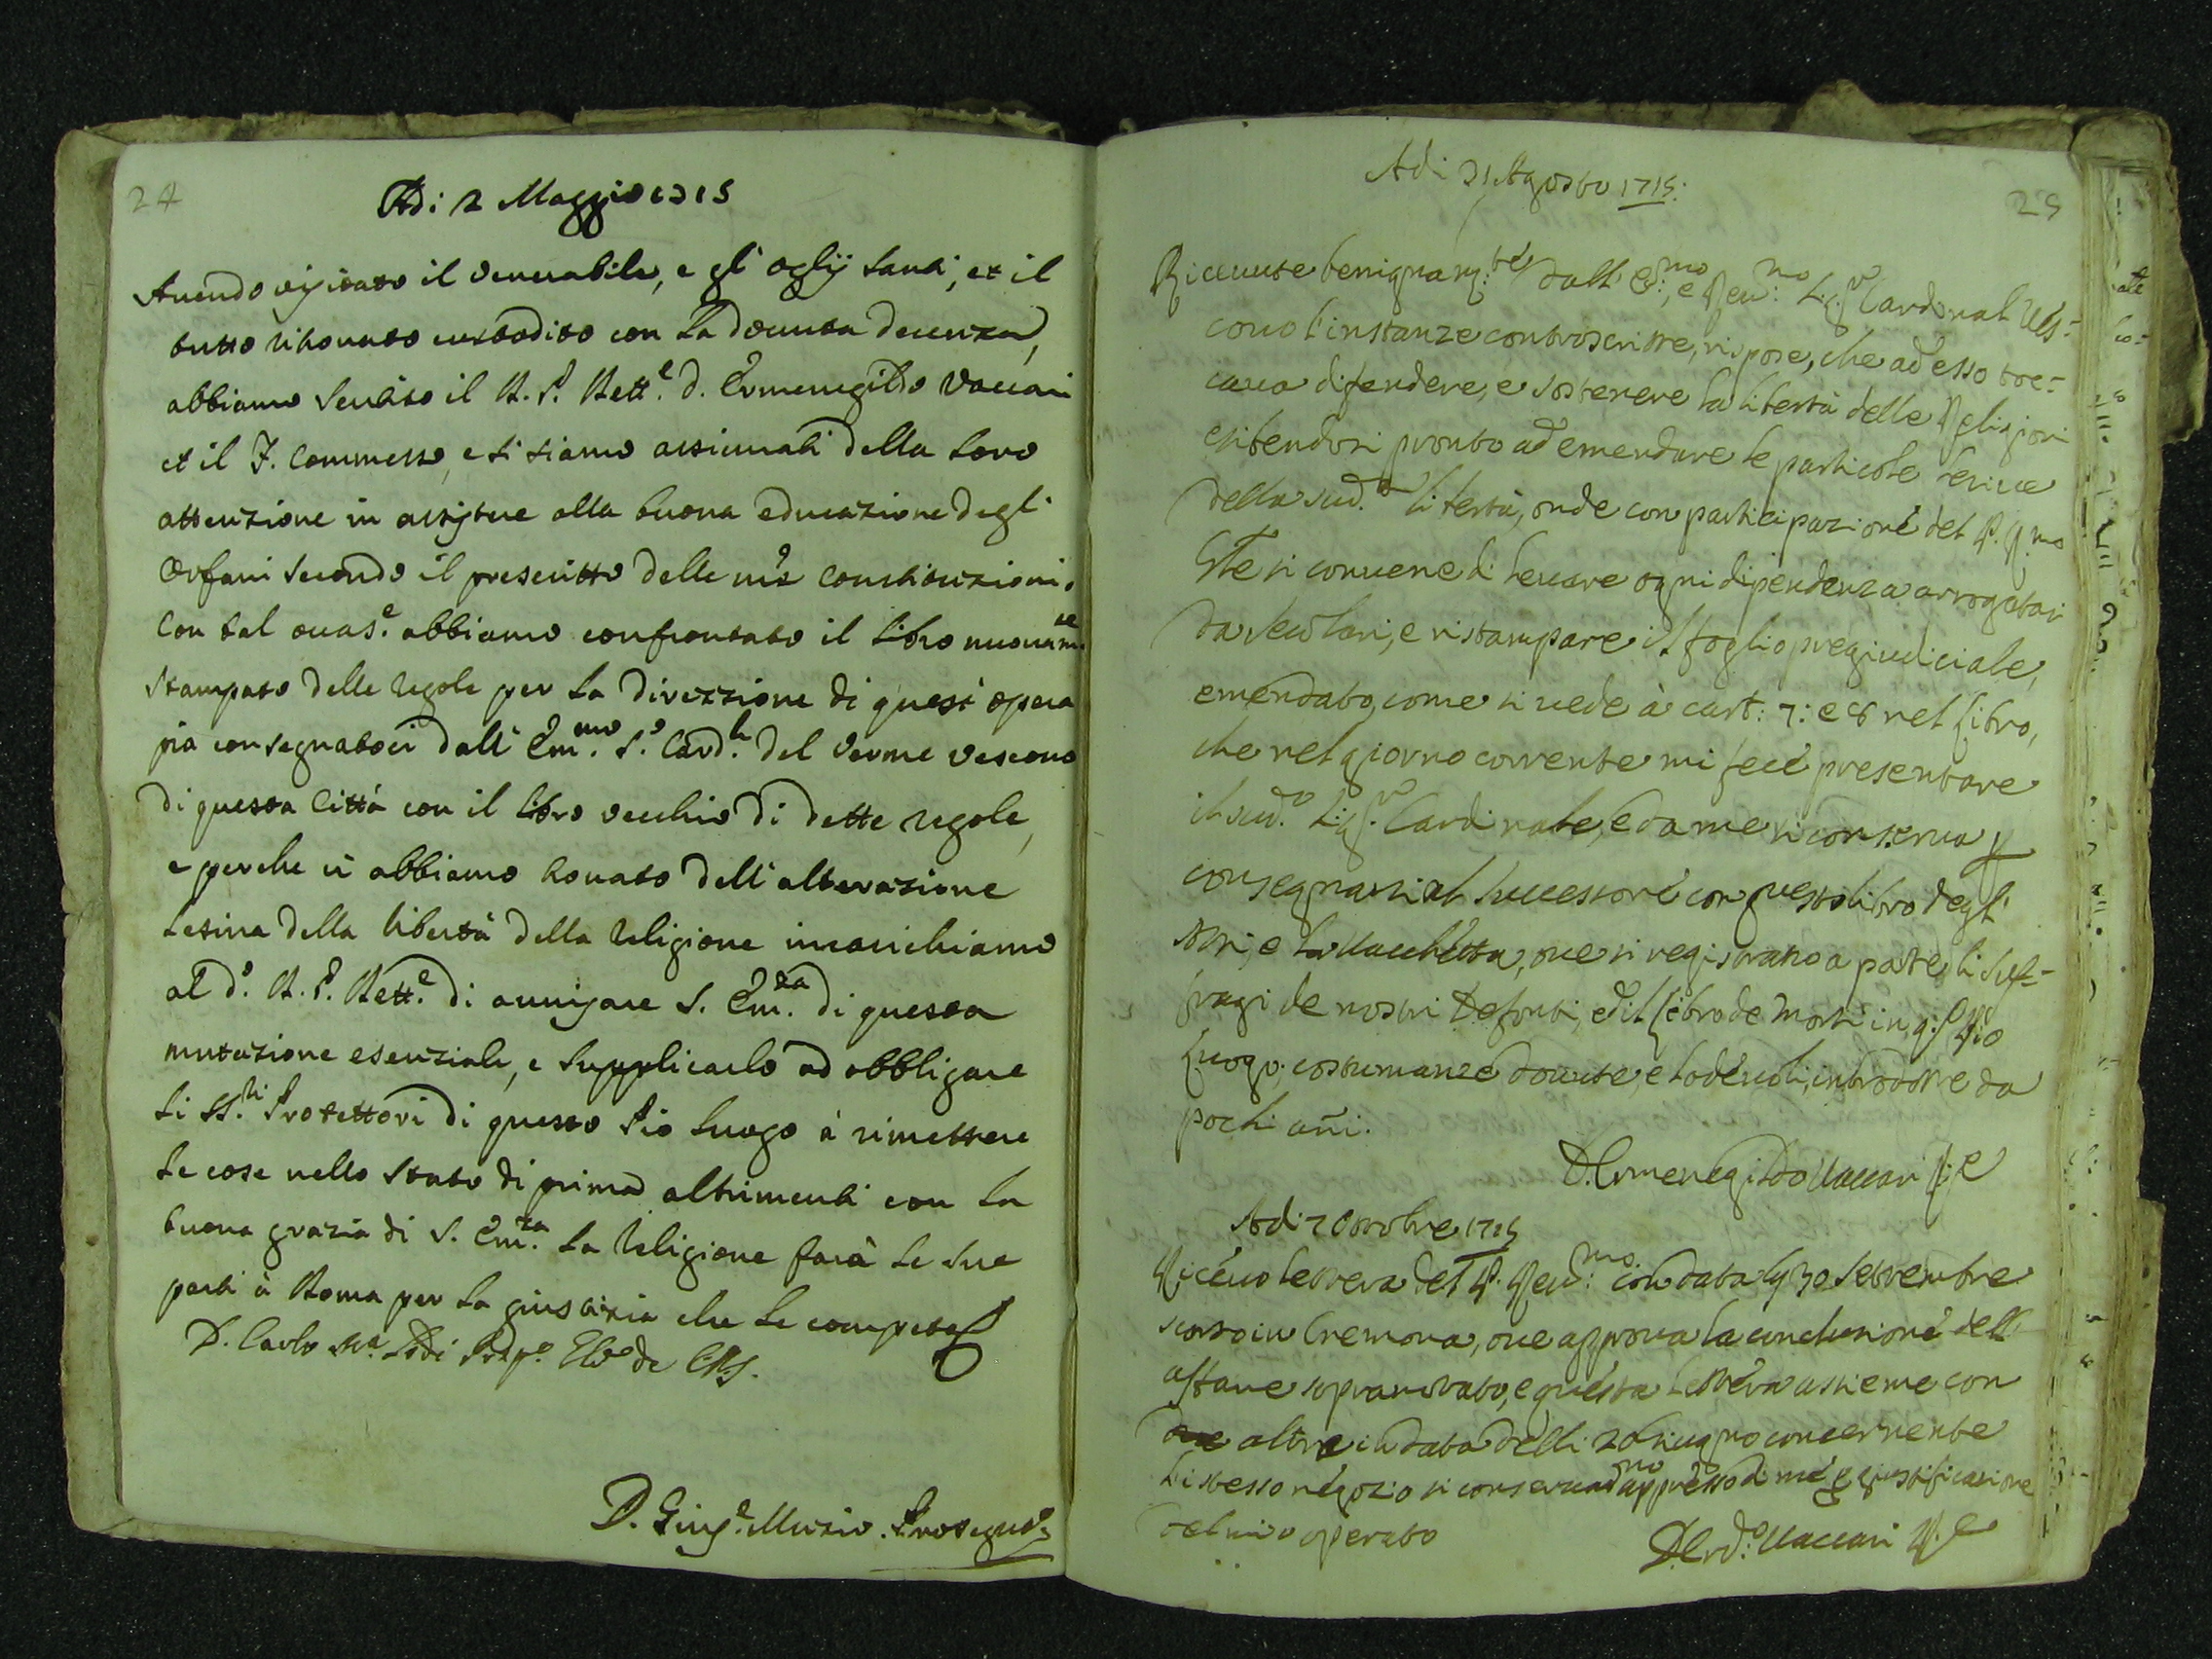 24
Adi 2 Maggio 1715
Avendo visitato il Venerabile, e gl' oglij santi, et il
tutto ritrovato custodito con la dovuta decenza,
abbiamo sentito il R. P. Rett.e D. Ermenegildo Vaccari
et il F. Commesso, e si siamo assicurati della loro
attenzione in assistere alla buona educazione degl'
Orfani secondo il prescritto delle nr̃e Constituzioni.
Con tal occas.e abbiamo confrontato il libro nuovam.te
stampato delle regole per la direzzione di quest' opera
pia consegnatoci dall' Em.mo S.r Card.le Del Verme Vescovo
di questa Città con il libro vecchio di dette regole,
e perche vi abbiamo trovato dell' alterazione
lesiva della libertà della Religione incarichiamo
al d.o R. P. Rett.e di avvisare S. Em.za di questa
mutazione esenziale, e supplicarlo ad obbligare
li SS.ri Protettori di questo Pio Luogo à rimettere
le cose nello stato di prima altrimenti con la
buona grazia di S. Em.za la Religione farà le sue
parti à Roma per la giustizia che le compete
D. Carlo M.a Lodi Prep.o
D. Giu.e Muzio. Prosegret.o
25
Adi 21 Agosto 1715.
Riceuute benignam.te dall' E.mo, e Reu.mo Sig.r Cardinal Ves-
couo l'instanze controscritte, rispose, che ad esso toc-
caua difendere, e sostenere la libertà delle Religioni
esibendosi pronto ad emendare le particole lesiue
della sud.a libertà, onde con participazione del P. R.mo
G̃le si conuene di leuare ogni dipendenza arrogatasi
da secolari, e ristampare il foglio pregiudiciale,
emendato, come si uede à cart: 7: e 8 nel libro,
che nel giorno corrente mi fece presentare
il sud.o Sig.r Cardinale, e da me si conserua p
consegnarsi al Successore con questo libro degl'
Atti, e la Vacchetta, oue si registrano a parte li suf-
fragi de nostri Defonti, ed il libro de Morti in q.sto Pio
Luogo, costumanze douute, e lodeuoli, introdotte da
pochi añi.
D. Ermenegildo Vaccari R.e
Adi 7 Ottobre 1715
Riceuo lettera del P. Reu.mo con data li 30 Settembre
scorso in Cremona, oue approua la conclusione dell'
affare sopranotato, e questa lettera assieme con
altre in data delli 20 Giugno concernente
listesso negozio si conseruano appresso di me p giustificazione
del mio operato
D. Erd.o Vaccari R.e